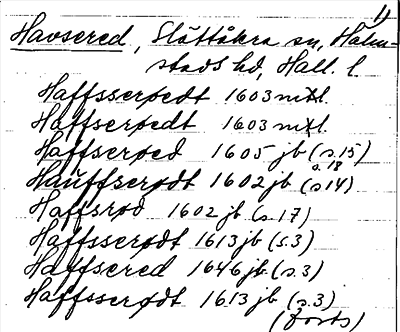 1)
Havsered, Slättåkra sn, Halm-
stads hd, Hall. l.
Haffsserøedt 1603 mtl.
Haffserøedt 1603 mtl.
Haffserøed 1605 jb (s.15)
s.18
Hauffserødt 1602 jb (s14)
Haffsrød 1602 jb (s.17)
Haffsserødt 1613 jb (s.3)
Haffsered 1646 jb (s.3)
Haffsserødt 1613 jb (s.3)
(Forts)